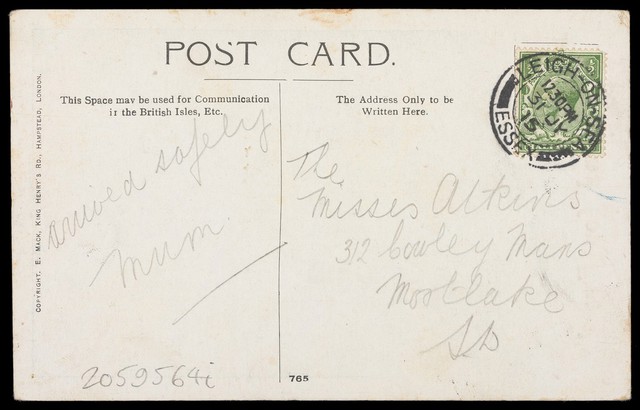 POST CARD.
This Space may be used for Communication
ir the British Isles, Etc.
The Address Only to be
Written Here.
LEIGH-ON-SEA
12.30PM
31 JY
15
ESSEX
arrived safely
Mum
The
Misses Atkins
312 Cowley Mans
Mortlake
COPYRIGHT, E. MACK, KING HENRY'S RD., HAMPSTEAD, LONDON.
2059564i
765